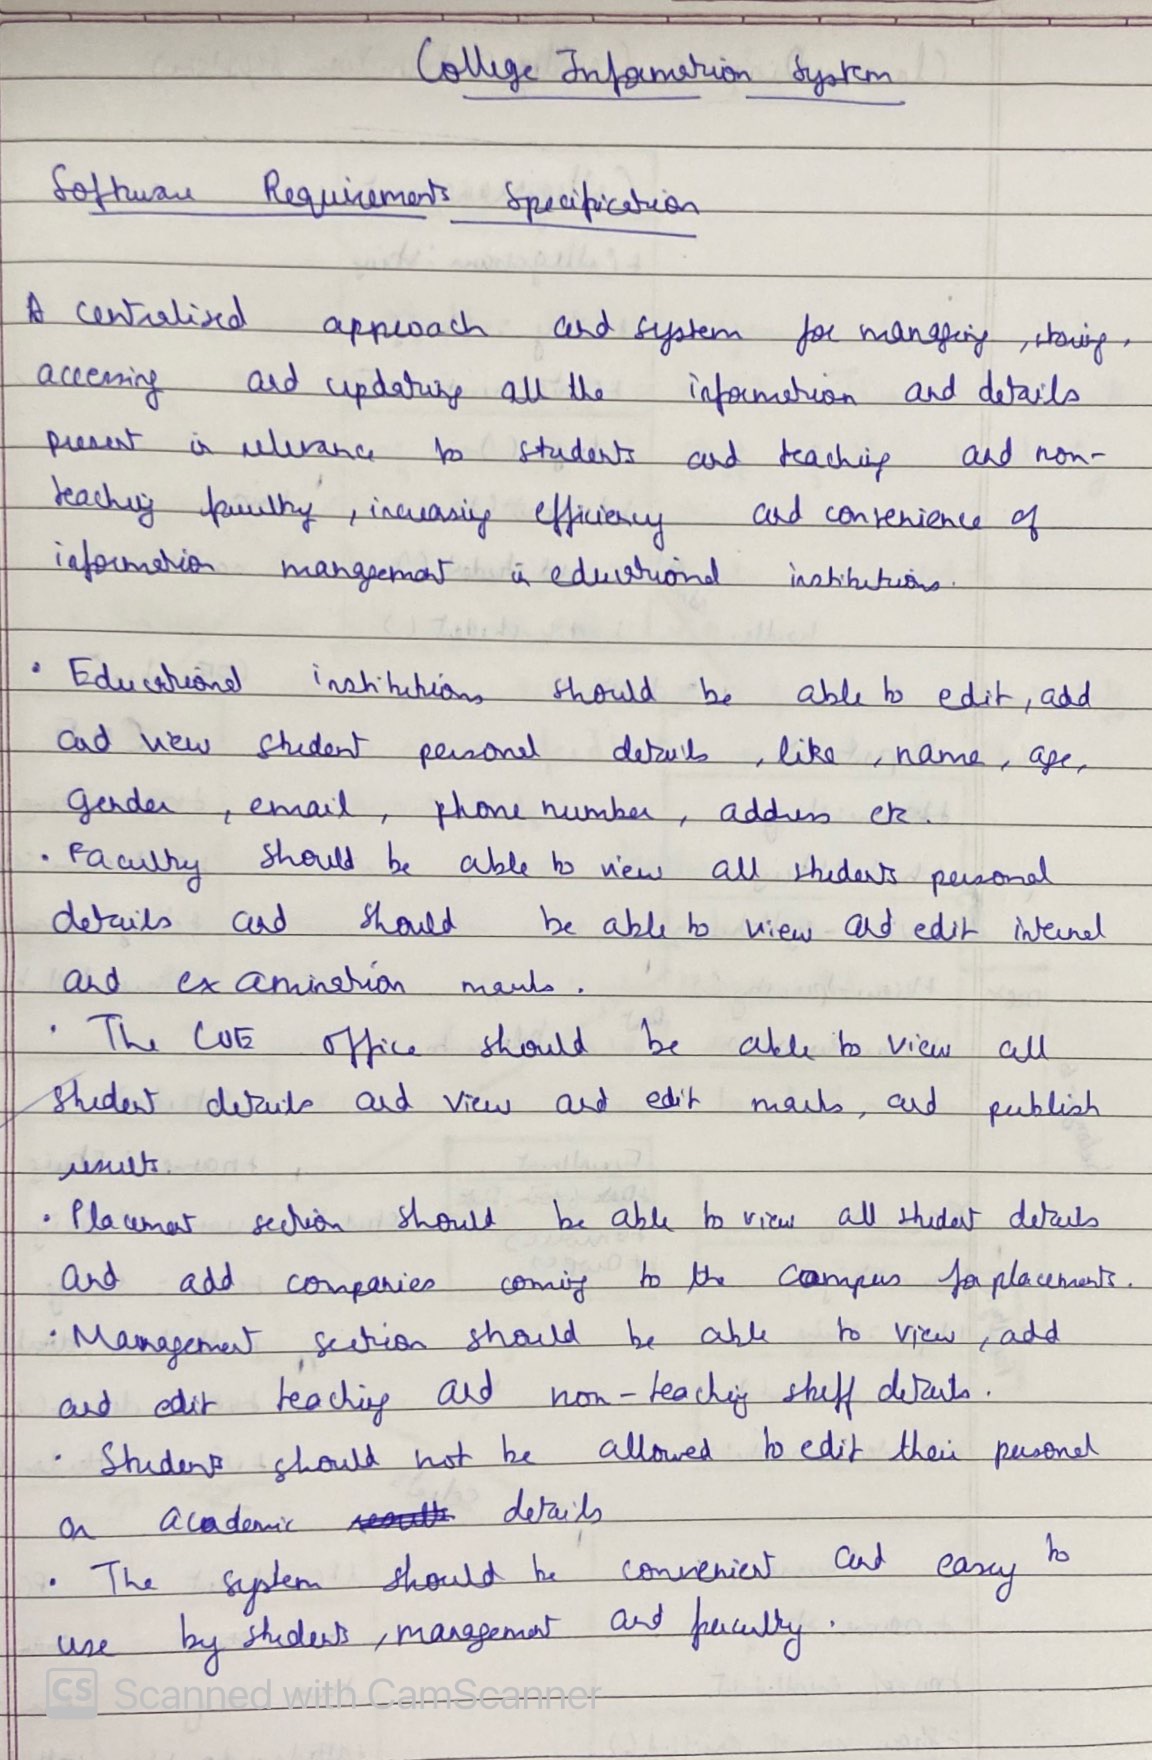 College Information System
Software Requirements Specification
A centralised approach and system for managing, storing,
accessing and updating all the information and details
present in relevance to students and teaching and non-
teaching faculty, increasing efficiency and convenience of
information mangement in educational institutions.
• Educational institutions should be able to edit, add
and view student personal details, like, name, age,
gender, email, phone number, address etc.
• Faculty should be able to view all students personal
details and should be able to view and edit internal
and examination marks.
• The COE office should be able to view all
student details and view and edit marks, and publish
results.
• Placement section should be able to view all student details
and add companies coming to the campus for placements.
• Management section should be able to view, add
and edit teaching and non-teaching staff details.
• Students should not be allowed to edit their personal
or academic details
• The system should be convenient and easy to
use by students, management and faculty.
CS Scanned with CamScanner